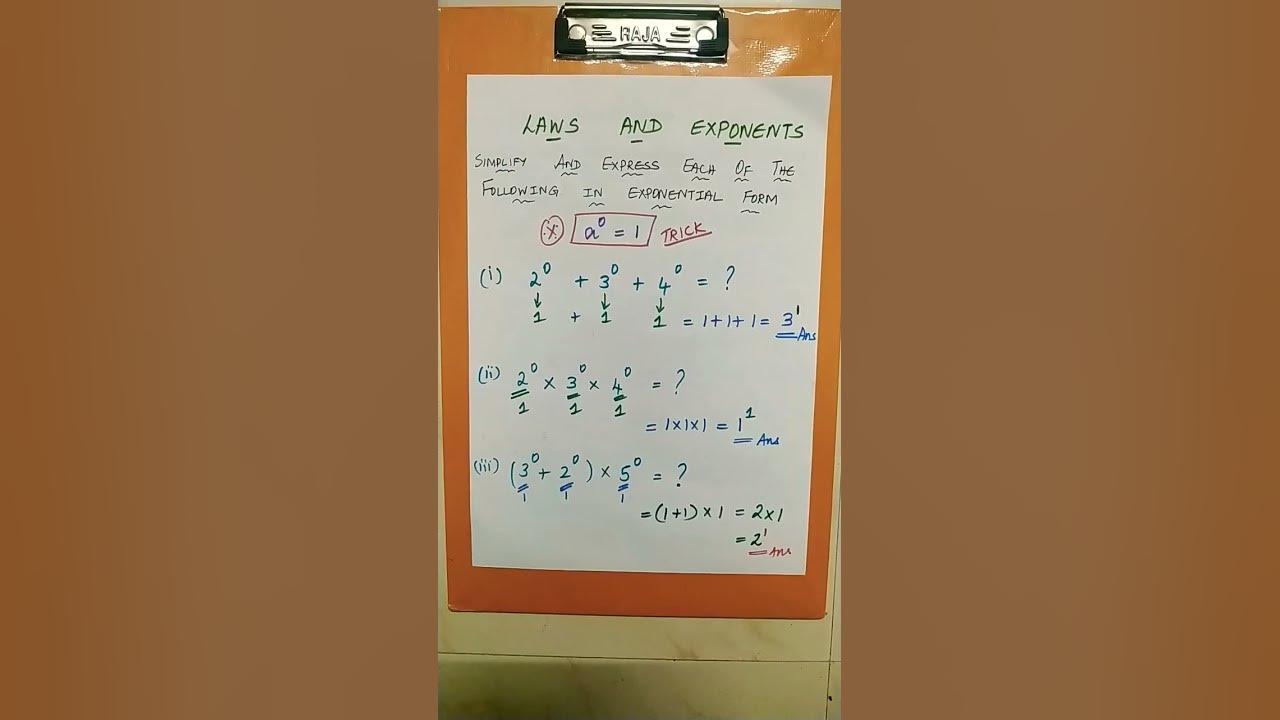 RAJA
LAWS AND EXPONENTS
SIMPLIFY AND EXPRESS EACH OF THE
FOLLOWING IN EXPONENTIAL FORM
a⁰ = 1 TRICK
(i) 2⁰ + 3⁰ + 4⁰ = ?
↓ ↓ ↓
1 + 1 1 = 1+1+1 = 3¹ Ans
(ii) 2⁰ × 3⁰ × 4⁰ = ?
1 1 1
= 1×1×1 = 1¹ Ans
(iii) (3⁰ + 2⁰) × 5⁰ = ?
1 1 1
= (1+1) × 1 = 2×1
= 2¹ Ans